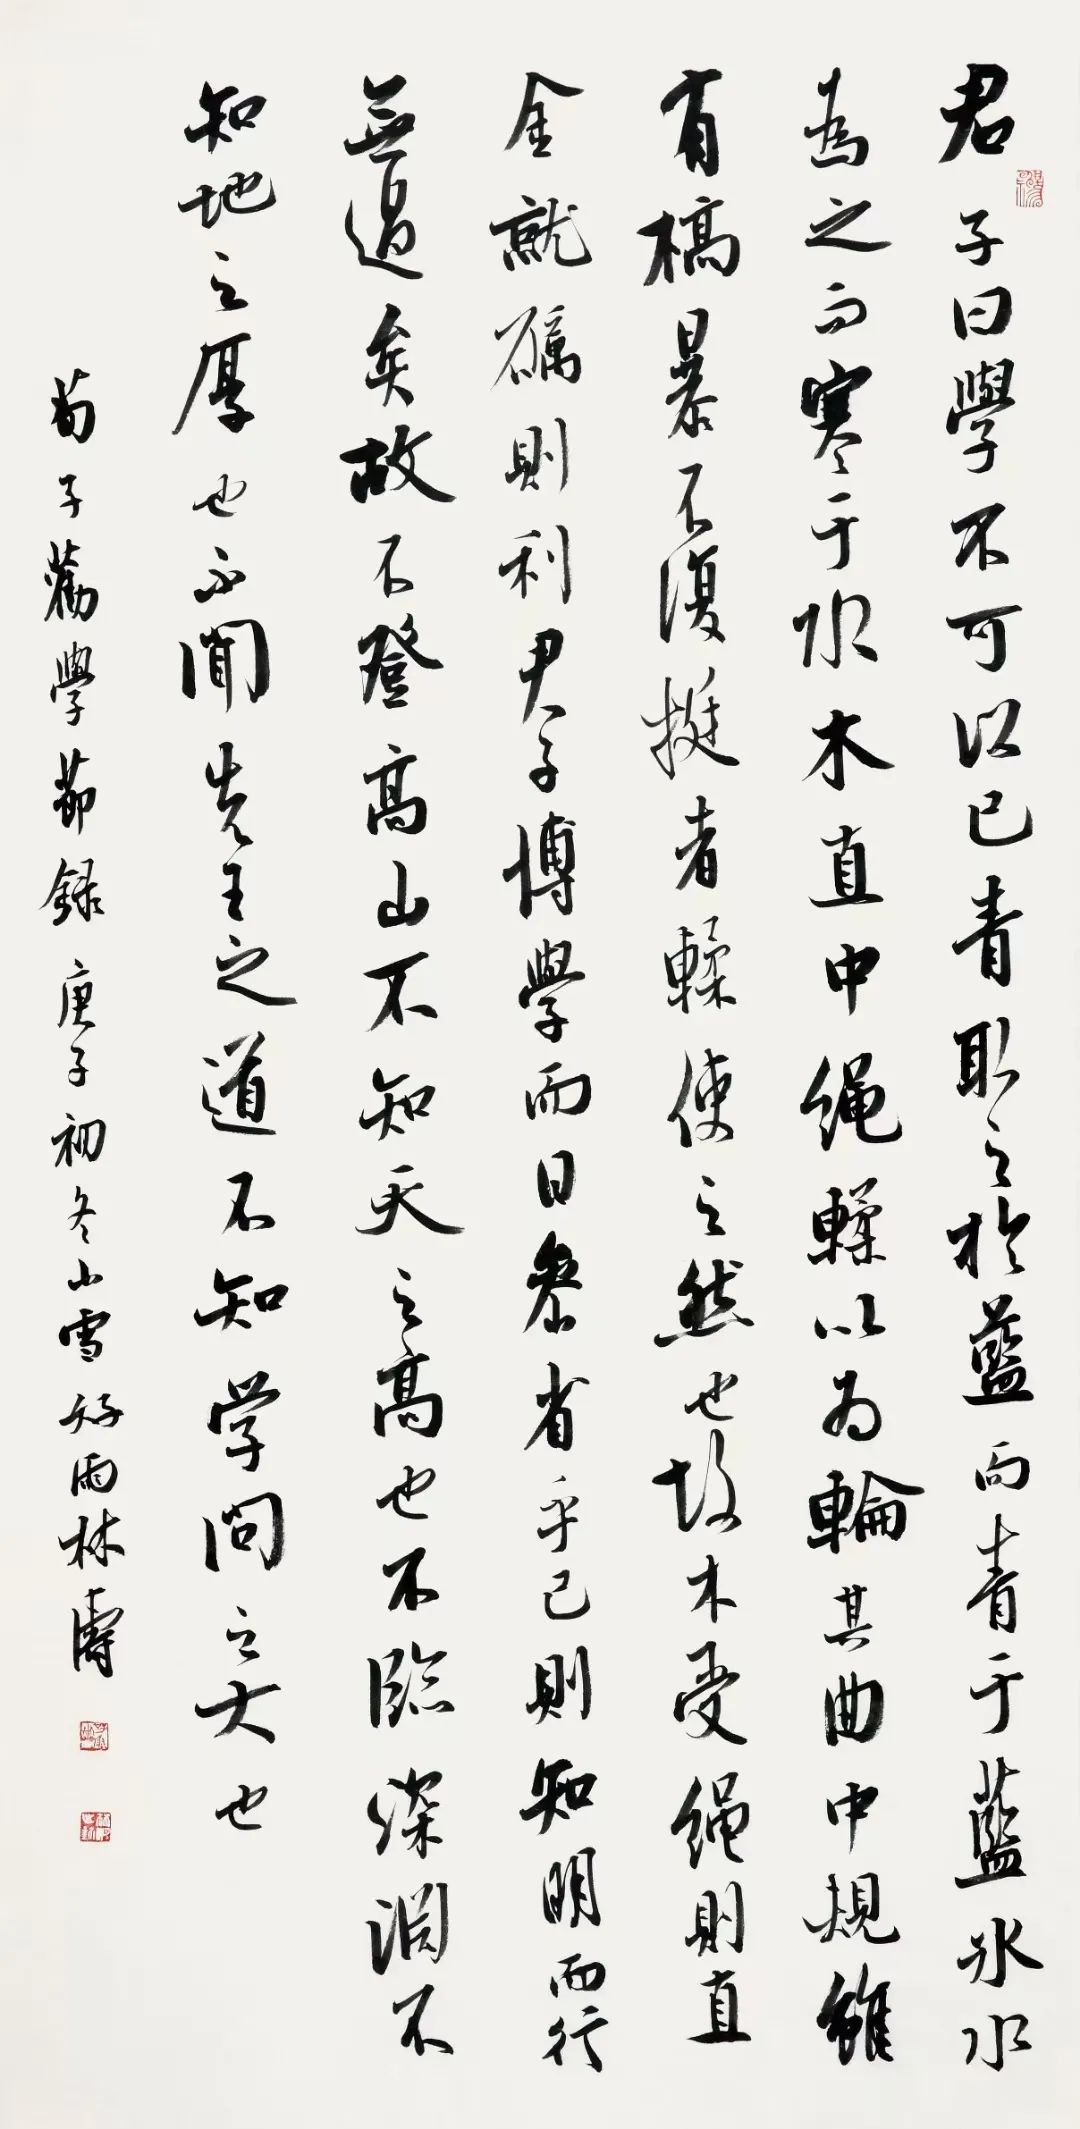 君子曰學不可以已青取之於藍而青于藍冰水
為之而寒于水木直中绳輮以为輪其曲中規雖
有槁暴不復挺者輮使之然也故木受绳則直
金就礪則利君子博學而日参省乎己則知明而行
無過矣故不登高山不知天之高也不臨深淵不
知地之厚也不聞先王之道不知学問之大也
荀子勸學節録庚子初冬小雪好雨林濤